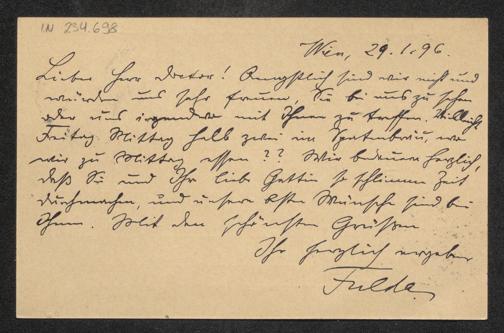 IN 234.698
Wien, 29.1.96.
Lieber Herr Doctor! Aengstlich sind wir nicht und
würden uns sehr freuen, Sie bei uns zu sehen
oder uns irgendwo mit Ihnen zu treffen. Vielleicht
Freitag Mittag halb zwei im Spatenbräu, wo
wir zu Mittag essen?? Wir bedauern herzlich,
daß Sie und Ihre liebe Gattin so schlimme Zeit
durchmachen, und unsere besten Wünsche sind bei
Ihnen. Mit den schönsten Grüßen
Ihr herzlich ergebener
Fulda